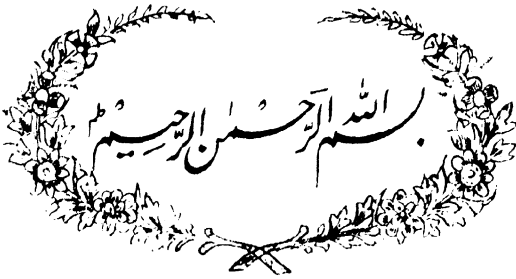 بسم الله الرَّحمٰن الرَّحِیْم ط